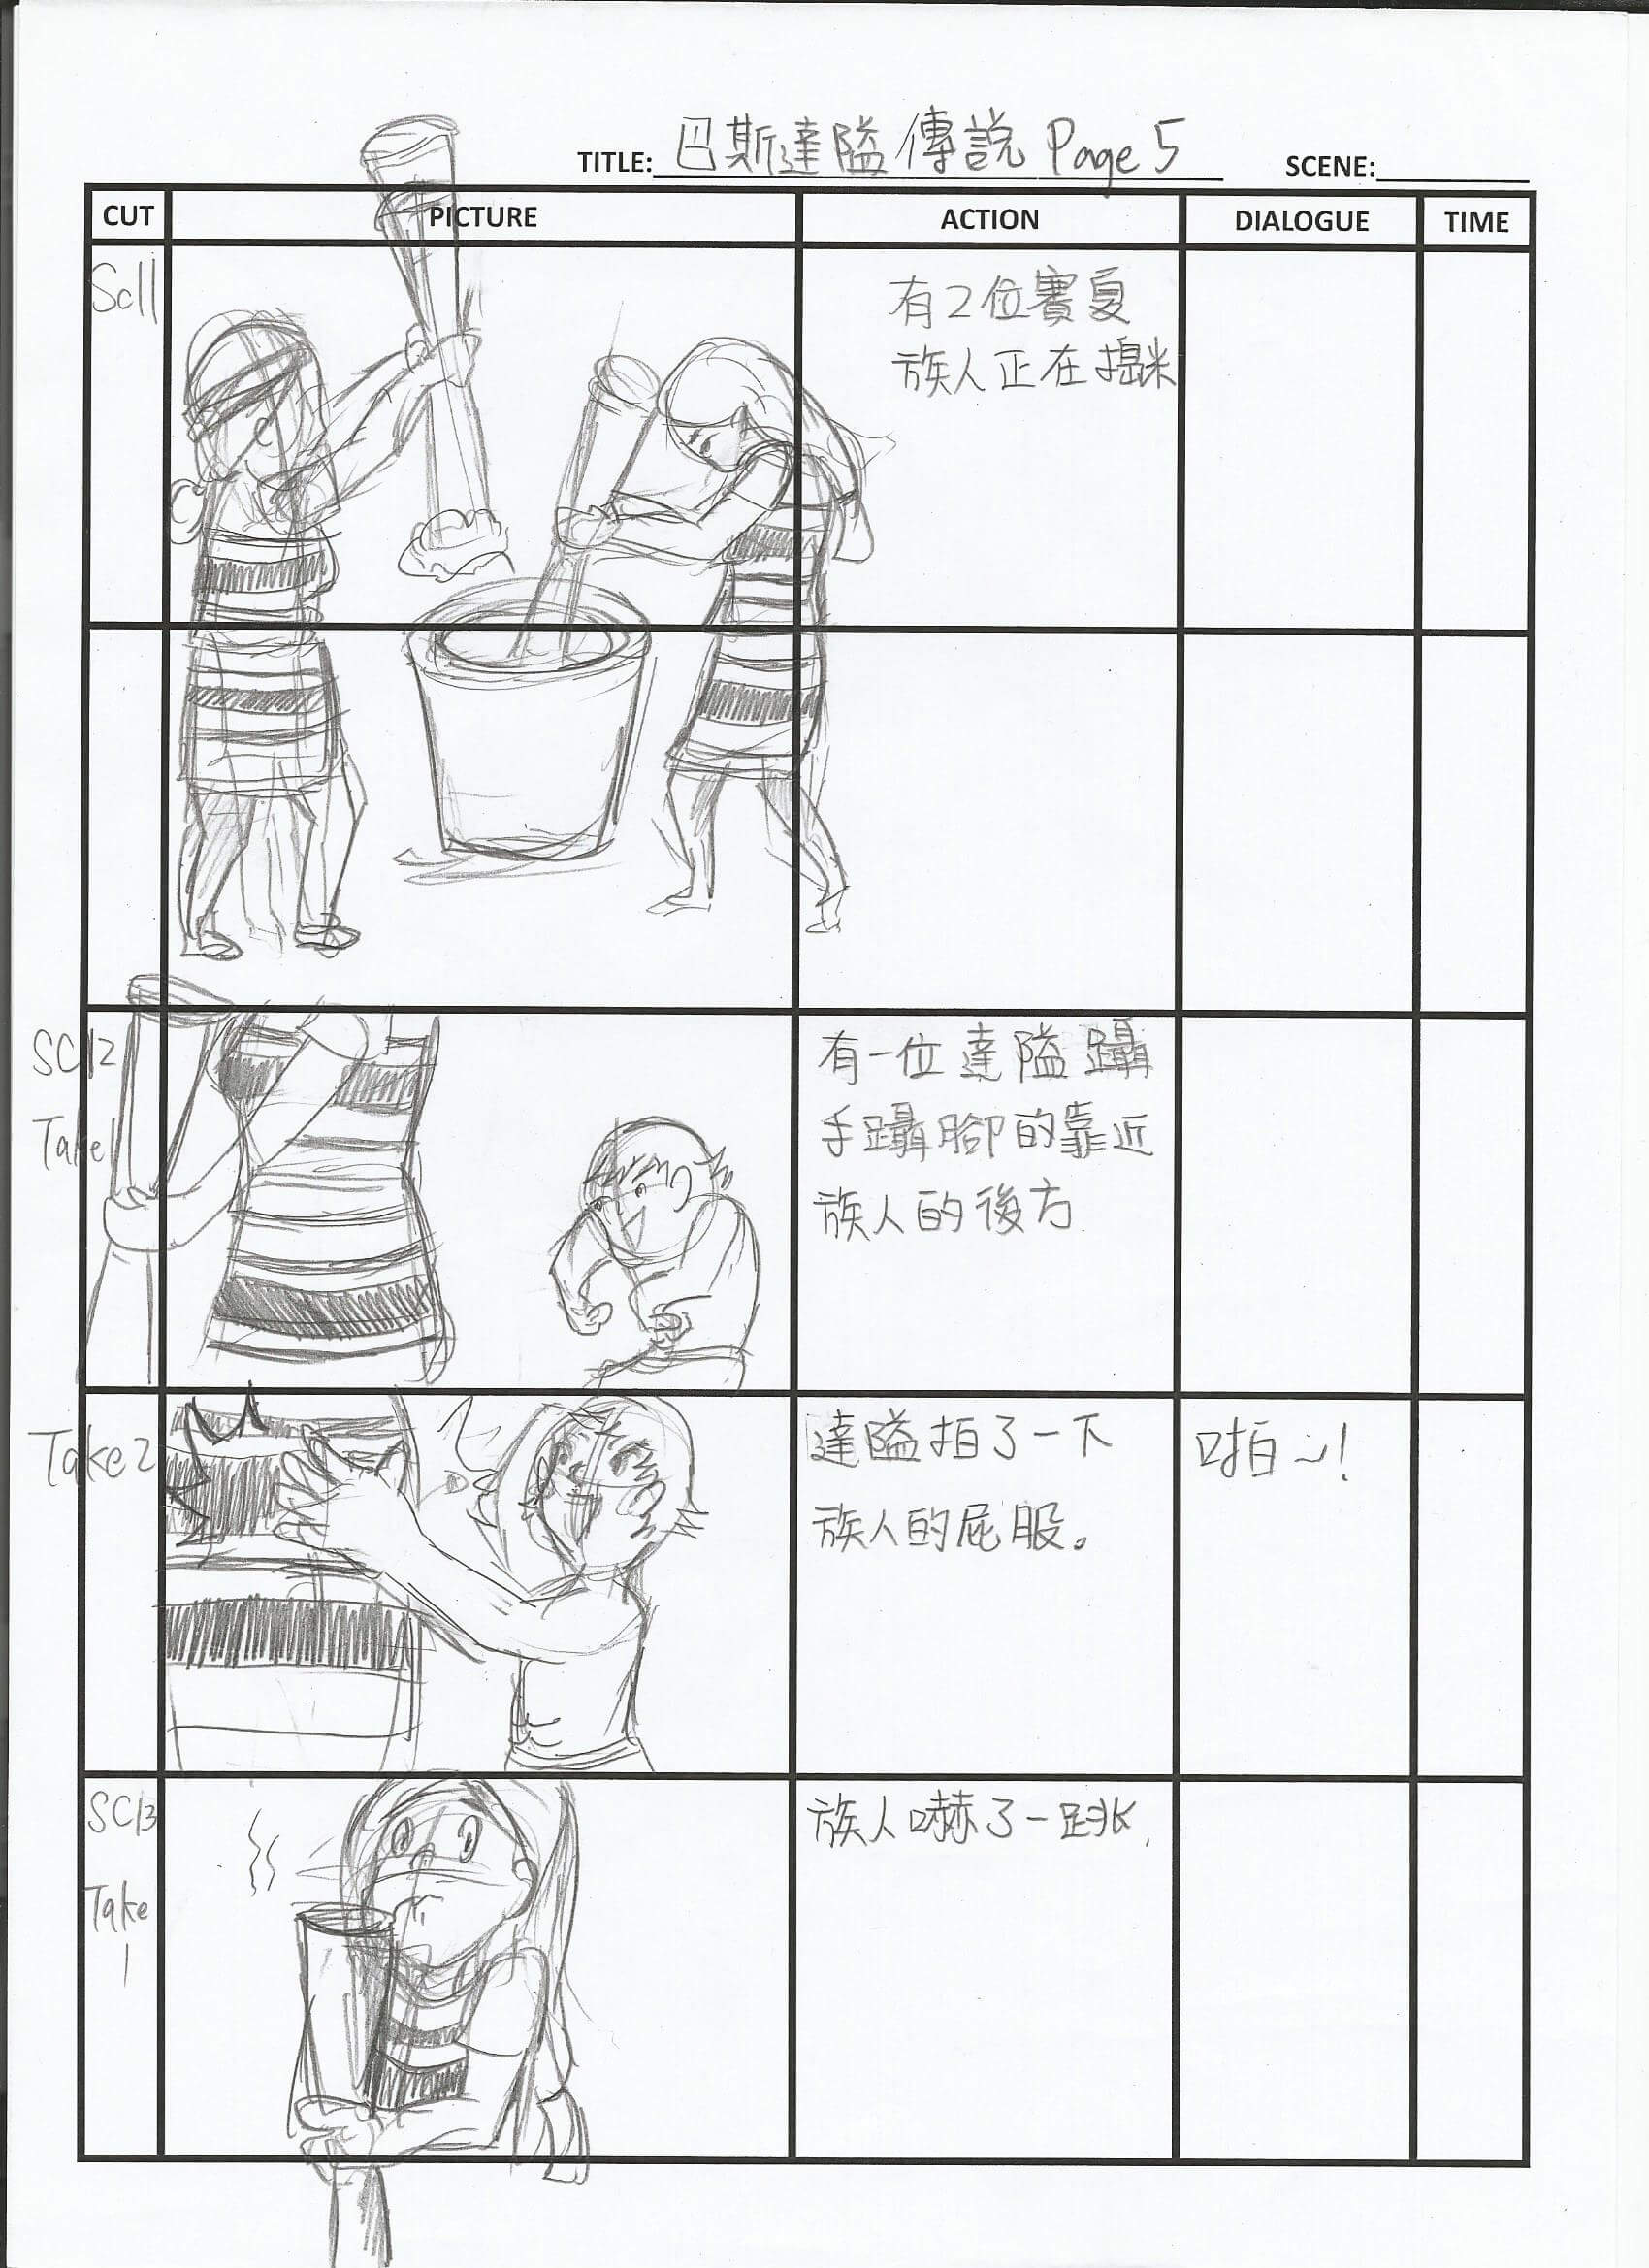 TITLE: 巴斯達隘傳說 Page 5 SCENE:
CUT PICTURE ACTION DIALOGUE TIME
Sc11
有2位賽夏
族人正在搗米
SC12
Take1
有一位達隘躡
手躡腳的靠近
族人的後方
Take2
達隘拍了一下
族人的屁股。
啪~!
SC13
Take
1
族人嚇了一跳.